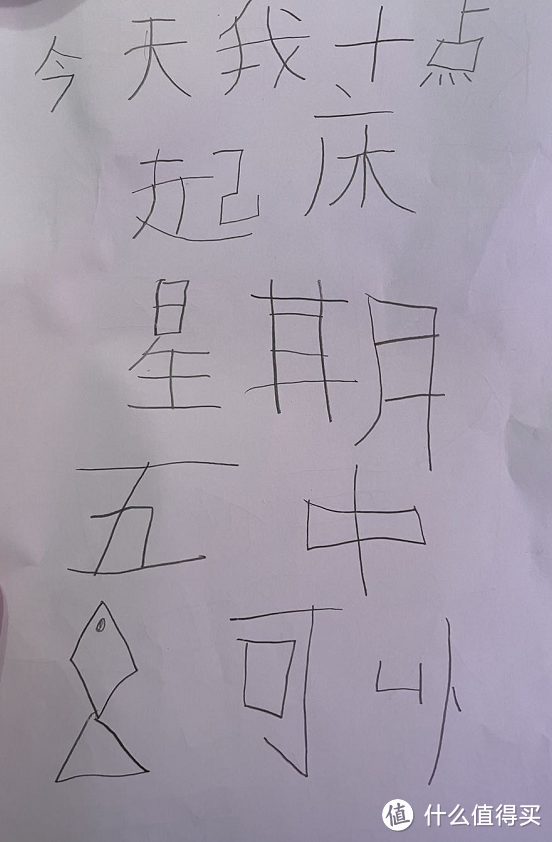 今天我十点
起床
星期
五中
可
值 什么值得买